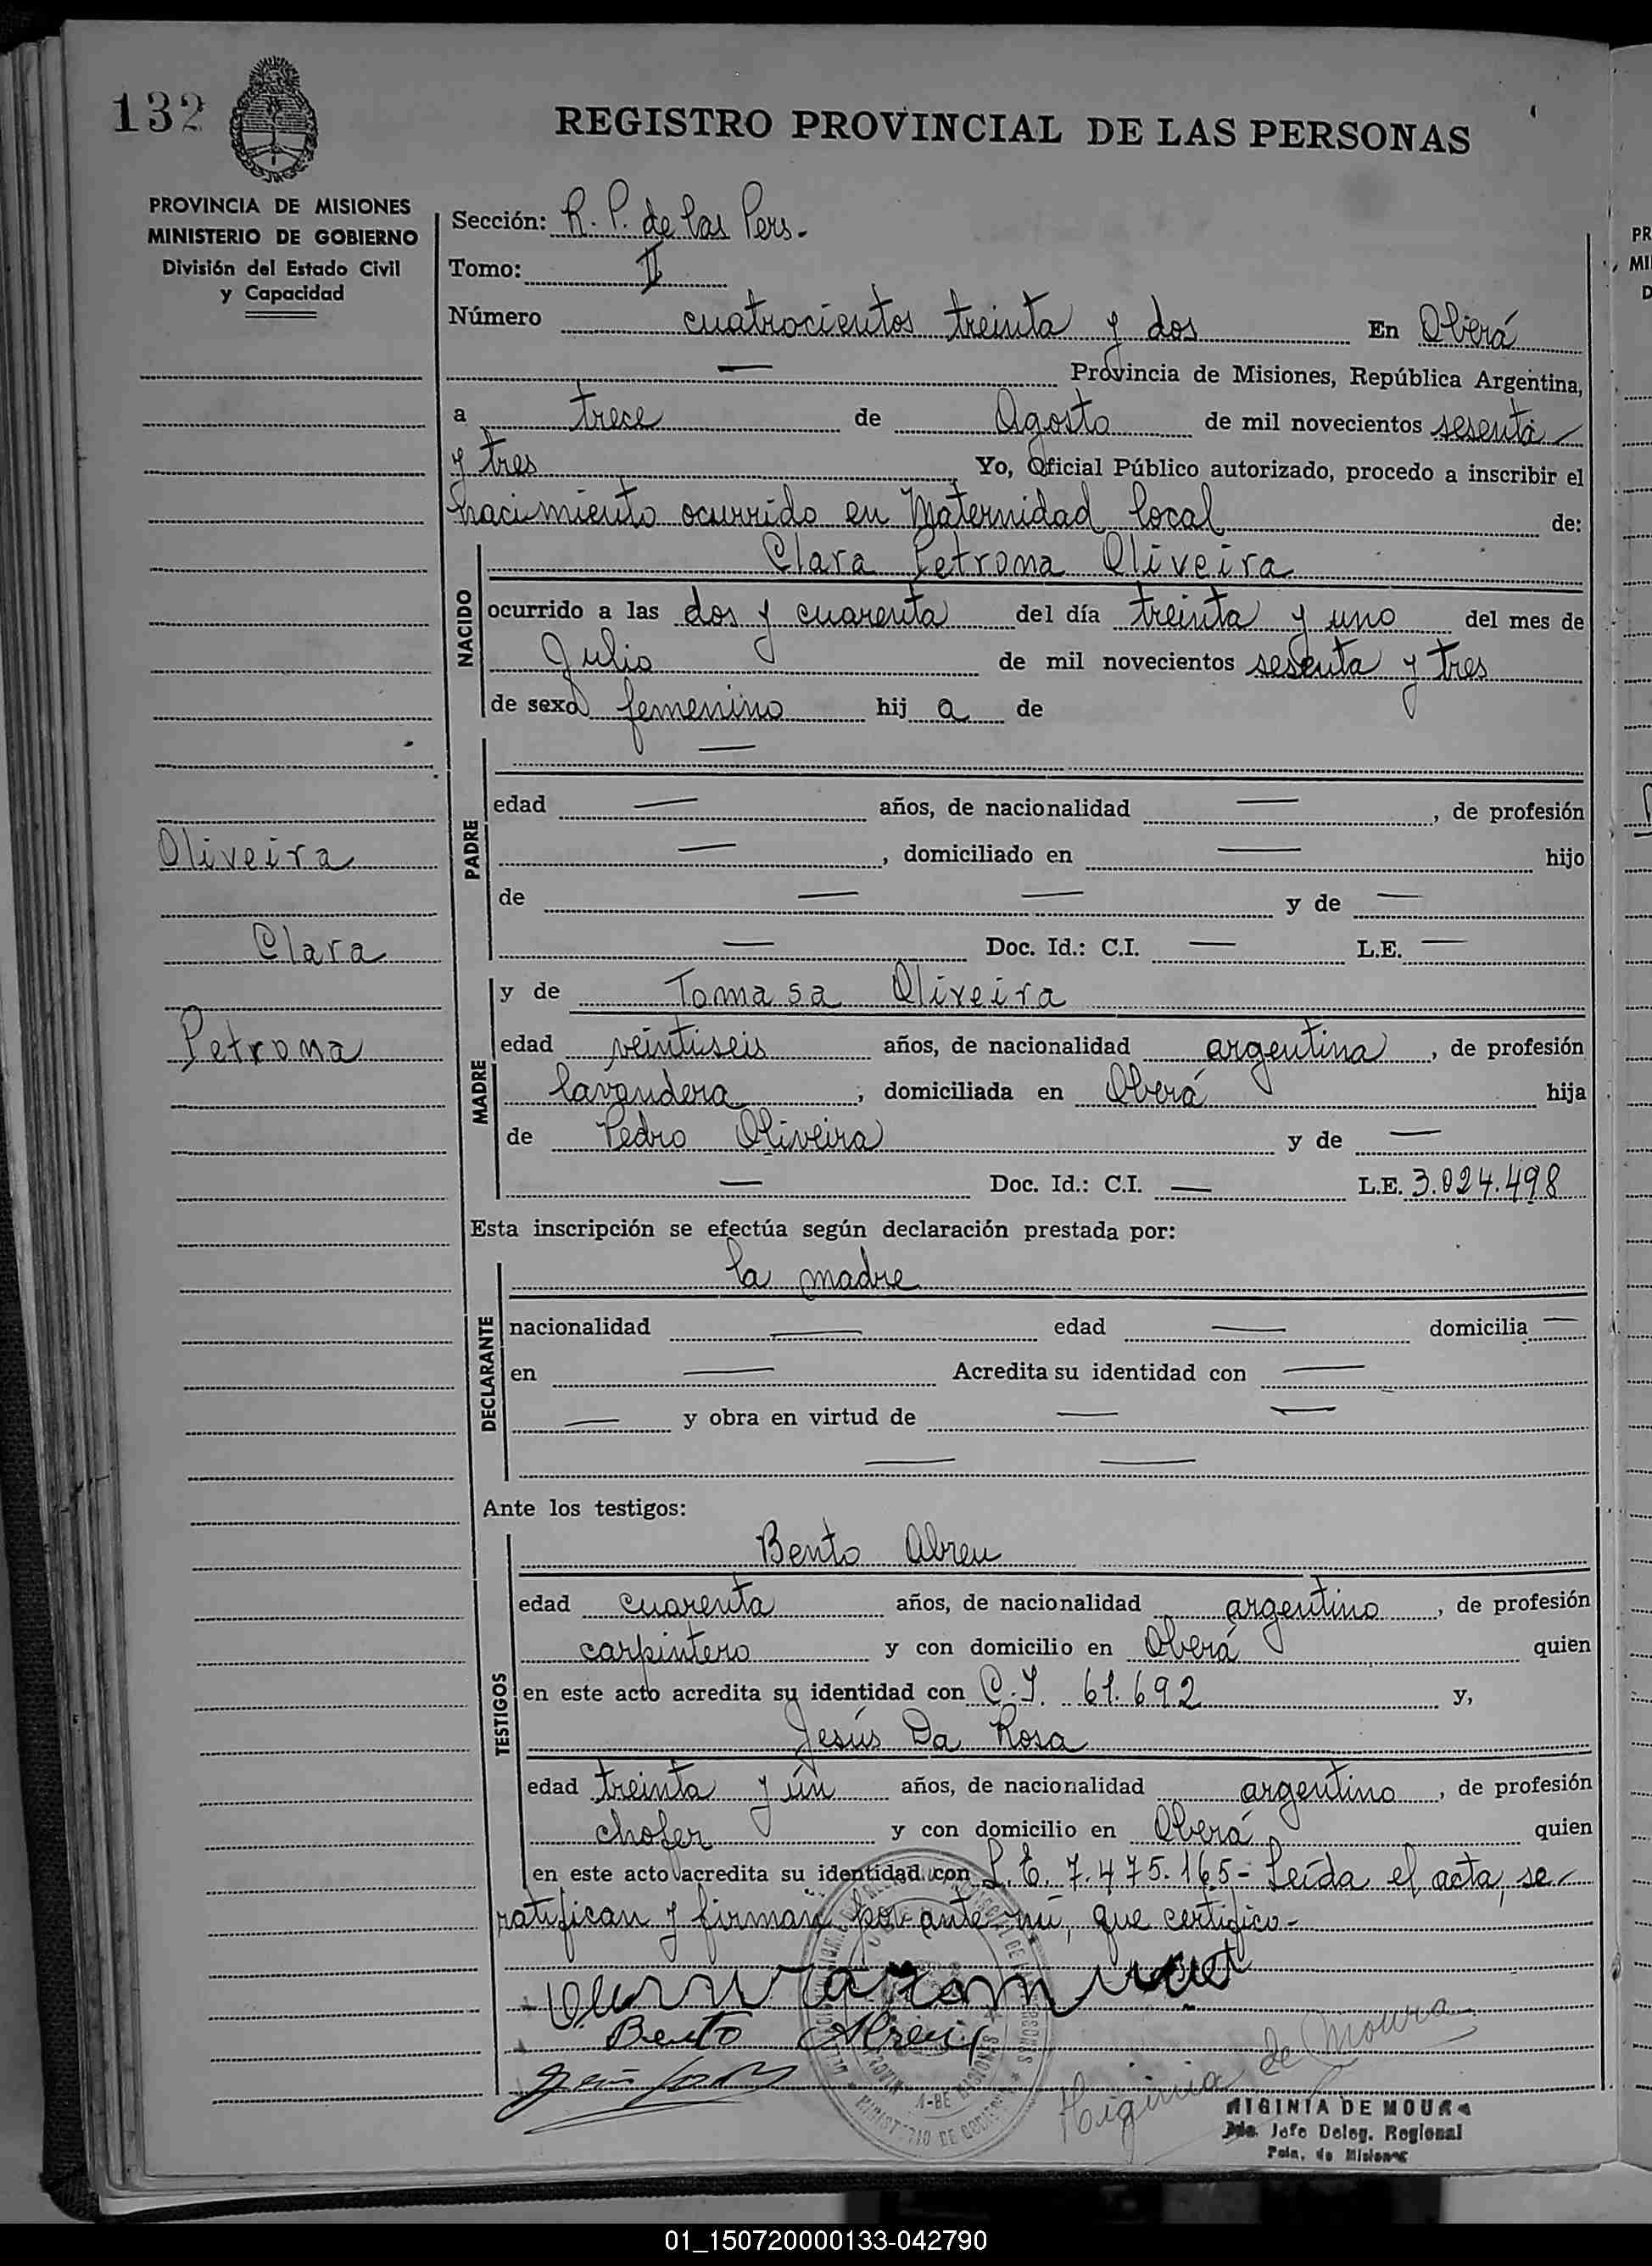 132
REGISTRO PROVINCIAL DE LAS PERSONAS
PROVINCIA DE MISIONES
MINISTERIO DE GOBIERNO
División del Estado Civil
y Capacidad
Sección: R. P. de las Pers.-
Tomo: II
Número cuatrocientos treinta y dos En Oberá
— Provincia de Misiones, República Argentina,
a trece de Agosto de mil novecientos sesenta
y tres Yo, Oficial Público autorizado, procedo a inscribir el
nacimiento ocurrido en Maternidad local de:
NACIDO
Clara Petrona Oliveira
ocurrido a las dos y cuarenta del día treinta y uno del mes de
Julio de mil novecientos sesenta y tres
de sexo femenino hij a de
PADRE
—
edad — años, de nacionalidad —, de profesión
—, domiciliado en — hijo
de — — y de —
— Doc. Id.: C.I. — L.E. —
Oliveira
Clara
Petrona
MADRE
y de Tomasa Oliveira
edad veintiseis años, de nacionalidad argentina, de profesión
lavandera, domiciliada en Oberá hija
de Pedro Oliveira y de —
— Doc. Id.: C.I. — L.E. 3.024.498
Esta inscripción se efectúa según declaración prestada por:
DECLARANTE
la madre
nacionalidad — edad — domicilia —
en — Acredita su identidad con —
— y obra en virtud de — —
— —
Ante los testigos:
TESTIGOS
Bento Abreu
edad cuarenta años, de nacionalidad argentino, de profesión
carpintero y con domicilio en Oberá quien
en este acto acredita su identidad con C.I. 61.692 y,
Jesús Da Rosa
edad treinta y ún años, de nacionalidad argentino, de profesión
chofer y con domicilio en Oberá quien
en este acto acredita su identidad con L.E. 7.475.165- Leída el acta, se
ratifican y firman por ante mí, que certifico-
Bento Abreu
Higinia de Moura
HIGINIA DE MOURA
Jefe Deleg. Regional
Pcia. de Misiones
01_150720000133-042790